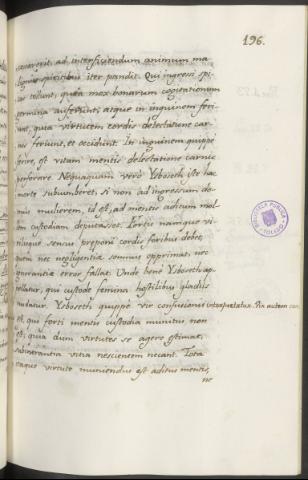 196.
cesserit, ad interficiendum animum ma
lignis spiritibus iter pandit. Qui ingressi spi
cas tollunt, quia mox bonarum cogitationum
germina auferunt, atque in inguinem feri
unt, quia virtutem cordis delectatione car
nis feriunt, et occidunt. In inguinem quippe
ferire, est vitam mentis delectatione carnis
perforare. Nequaquam vero Ysboseth iste hac
morte subcumberet, si non ad ingressum do
mus mulierem, id est, ad mentis aditum mol
lem custodiam deputasset. Fortis namque vi
rilisque sensus preponi cordis foribus debet,
quem nec negligentia somnus opprimat, nec
ignorantia error fallat. Unde bene Ysboseth ap
pellatur, qui custode femina hostilibus gladiis
nudatur. Ysboseth quippe vir confusionis interpretatur. Vir autem con
est, qui forti mentis custodia munitus non
est, quia dum virtutes se agere estimat,
subintrantia vitia nescientem necant. Tota
itaque virtute muniendus est aditus mentis,
ne
BIBLIOTECA PUBLICA
TOLEDO